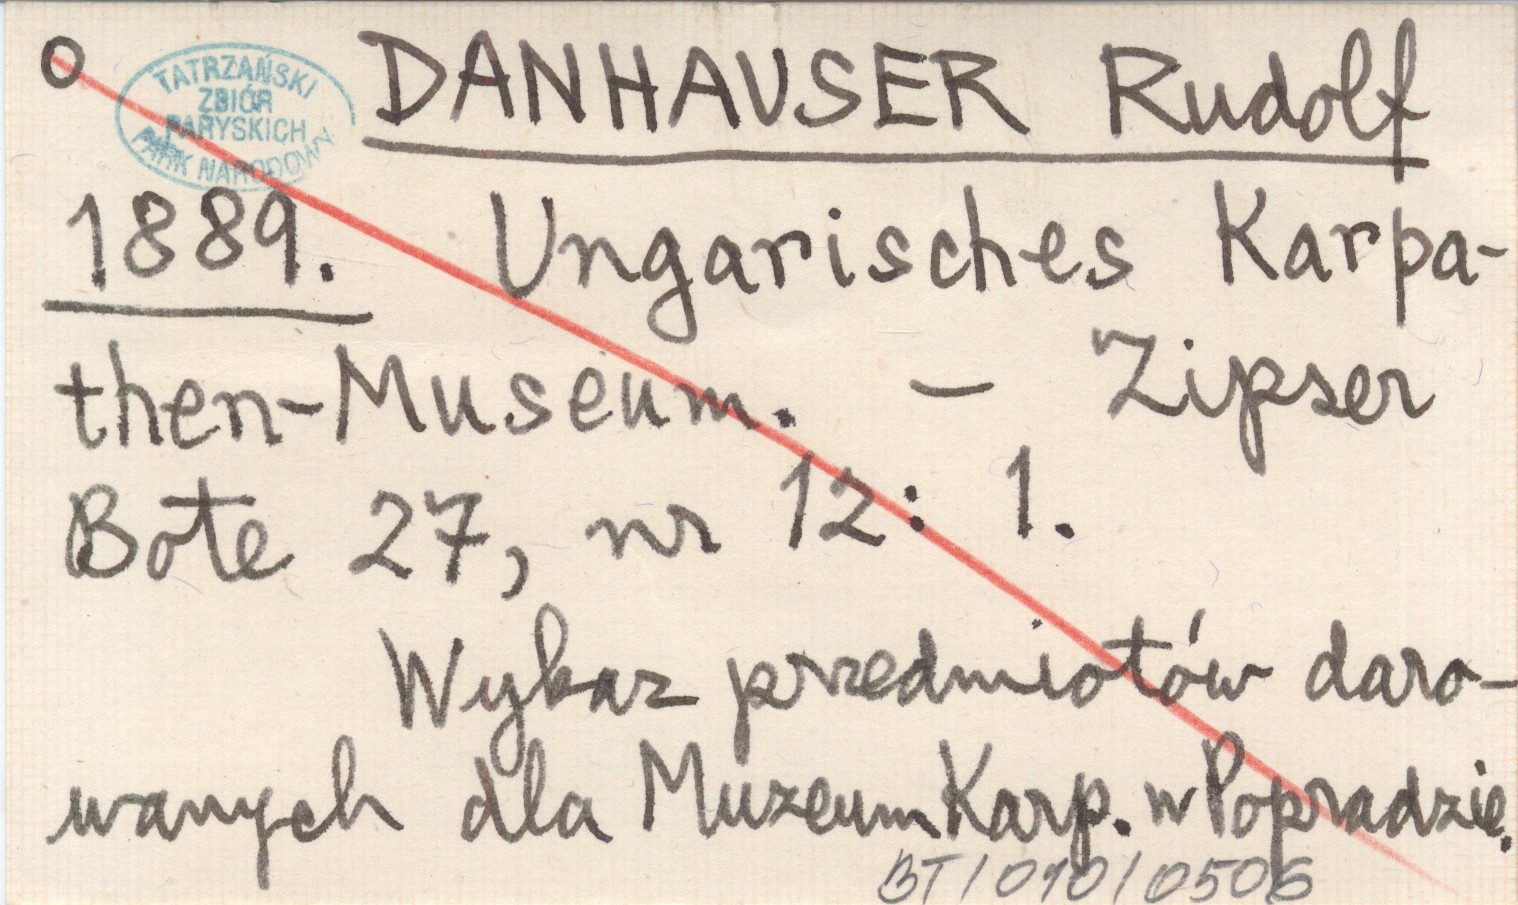 O
TATRZAŃSKI
ZBIÓR
PARYSKICH
PARK NARODOWY
DANHAUSER Rudolf
1889. Ungarisches Karpa-
then-Museum. – Zipser
Bote 27, nr 12: 1.
Wykaz przedmiotów daro-
wanych dla Muzeum Karp. w Popradzie.
BT/010/0506